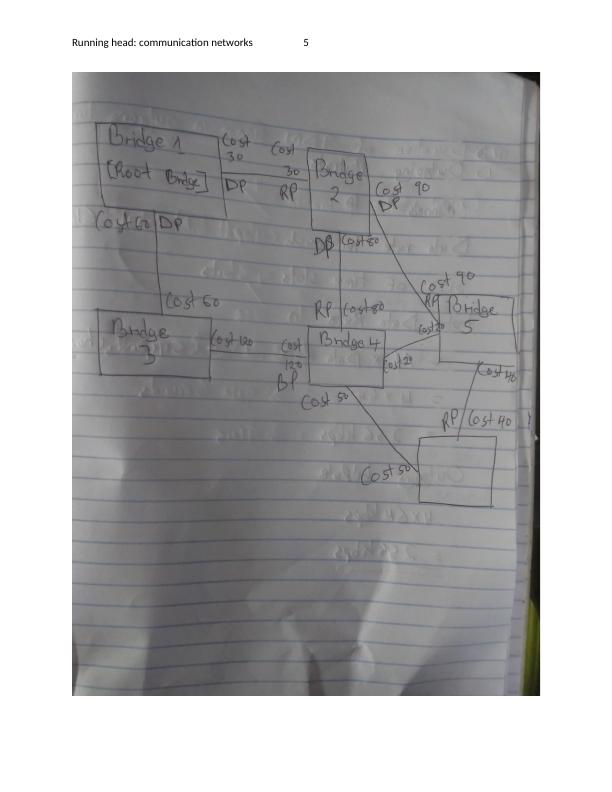 Running head: communication networks 5
Bridge 1
[Root Bridge]
Cost
30
Cost
30
DP
RP
Bridge
2
Cost 90
DP
Cost 60
DP
DP
Cost 80
Cost 60
Cost 90
RP
Bridge
5
RP
Cost 80
Bridge
3
Cost 120
Cost
120
BP
Bridge 4
Cost 20
Cost 20
Cost 40
Cost 50
RP
Cost 40
Cost 50